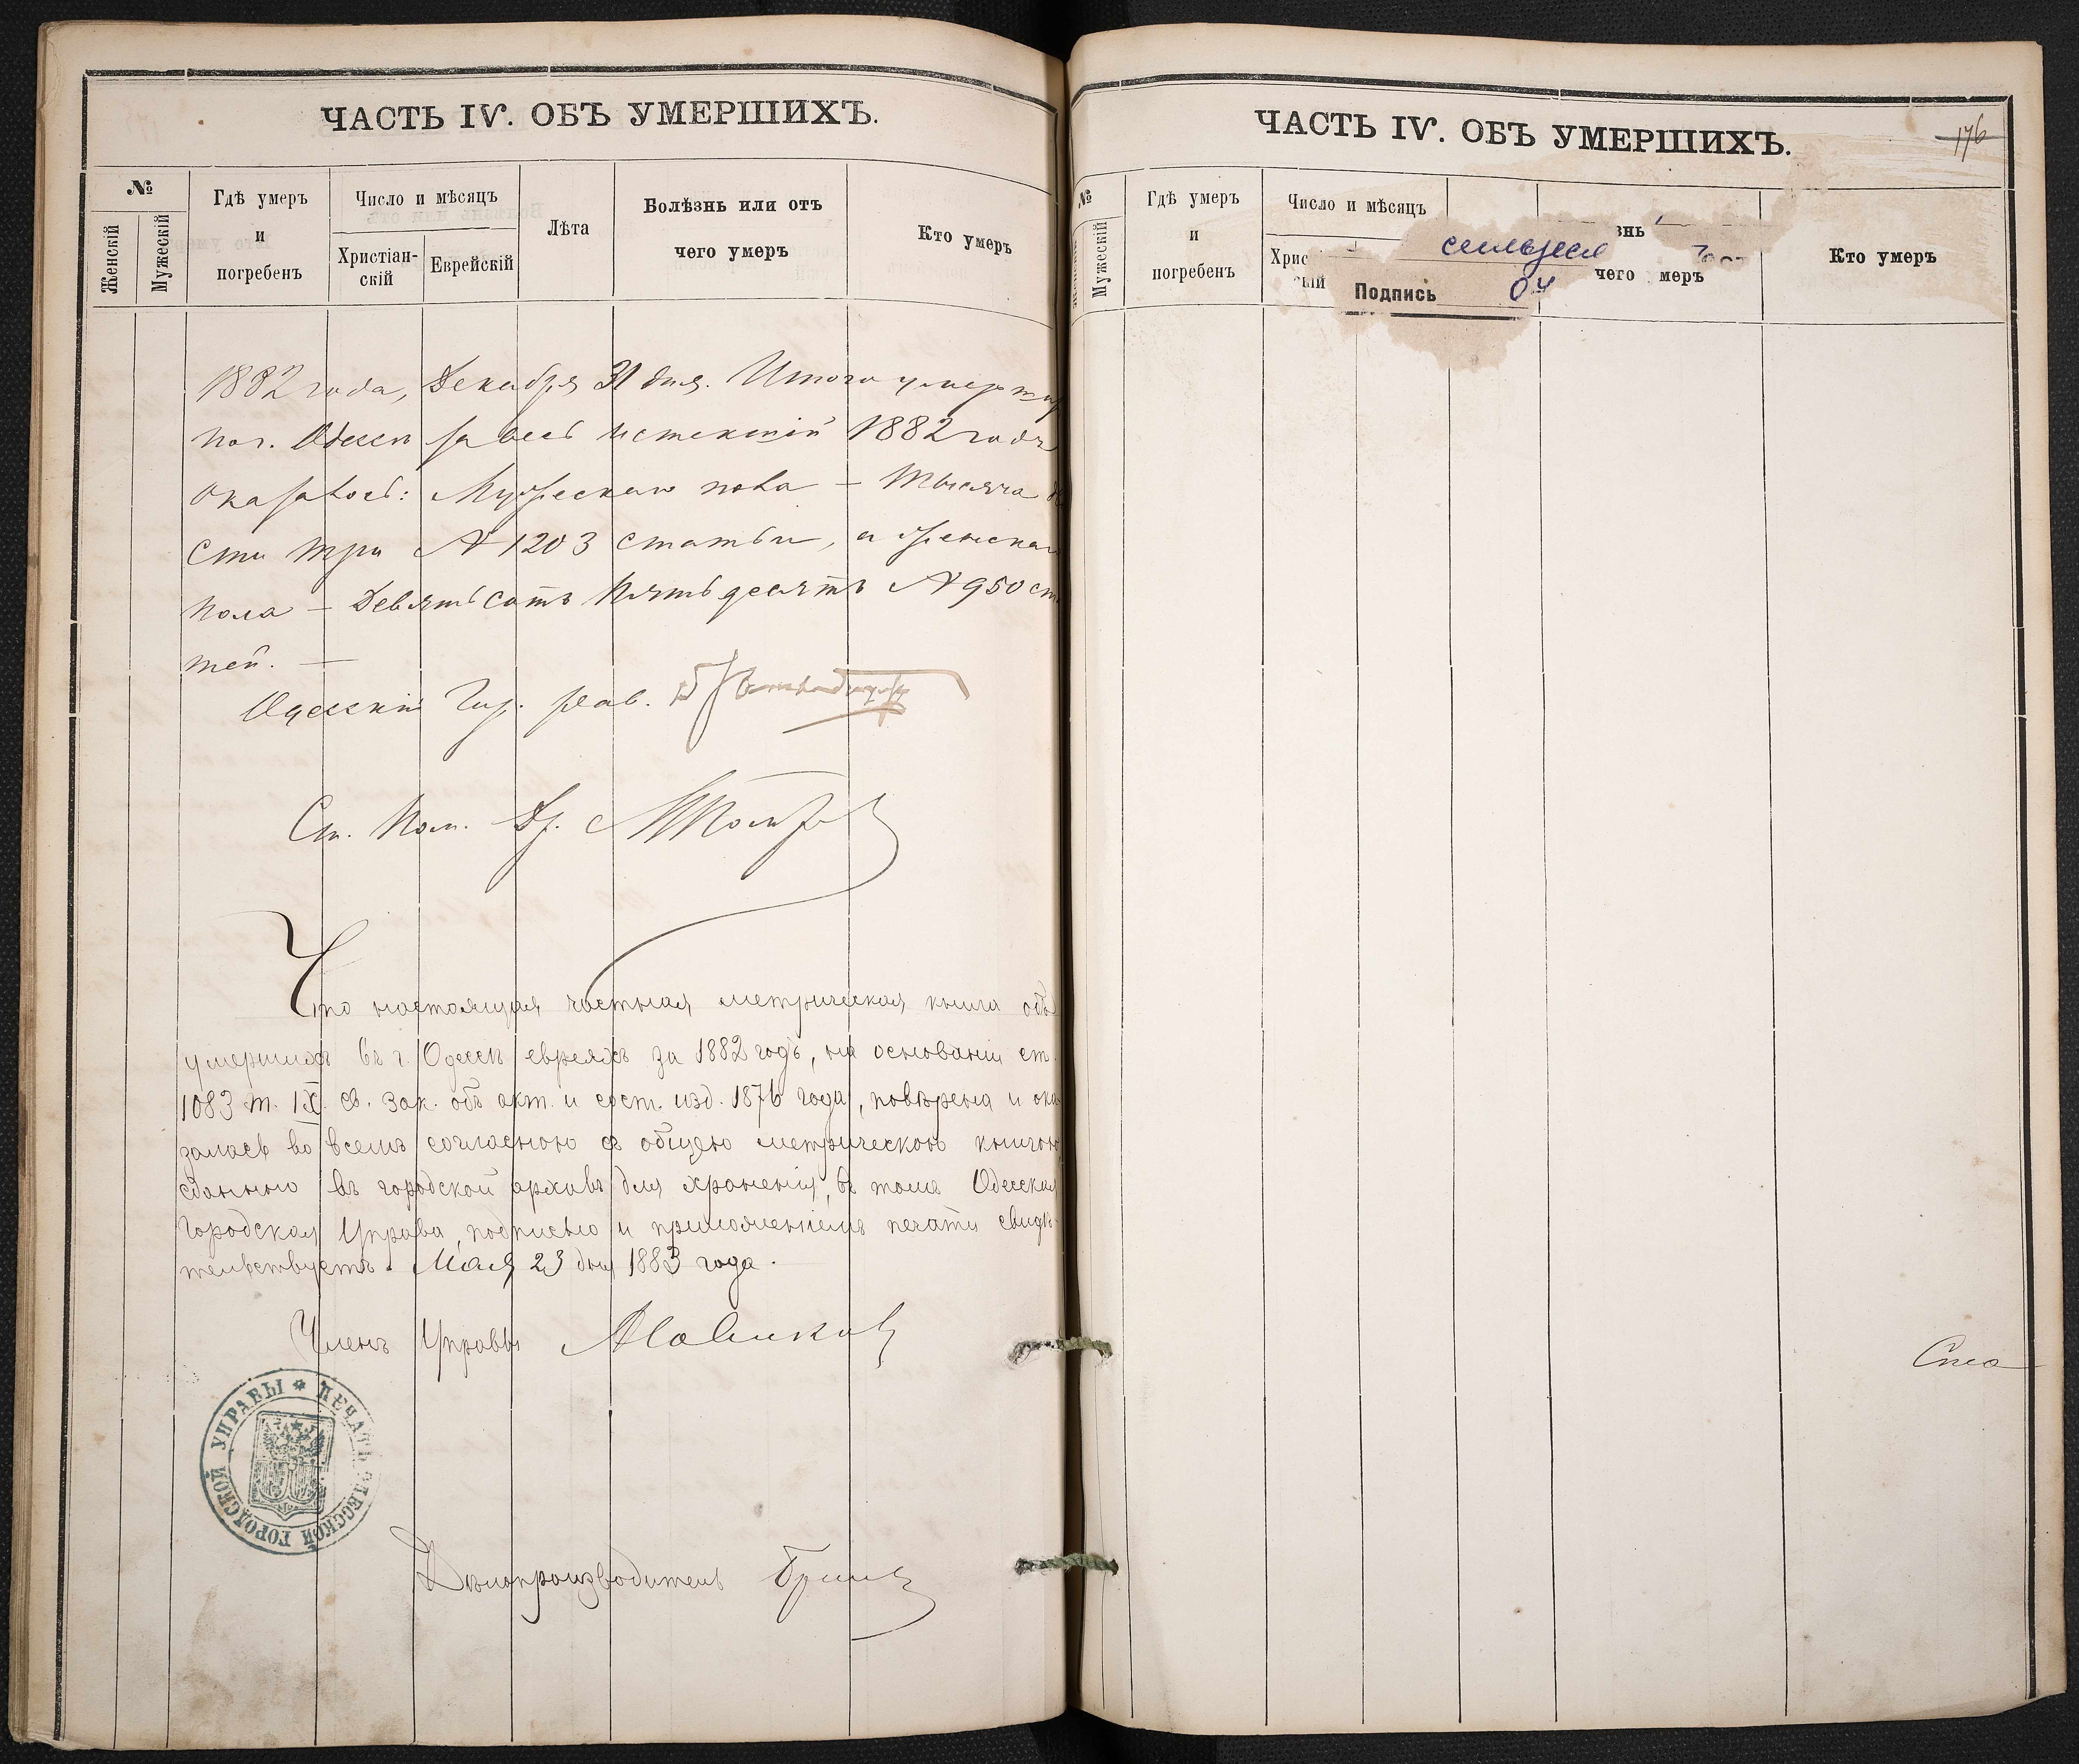 ЧАСТЬ IV. ОБЪ УМЕРШИХЪ.
№
Женскій
Мужескій
Гдѣ умеръ
и
погребенъ
Число и мѣсяцъ
Христіан-
скій
Еврейскій
Лѣта
Болѣзнь или отъ
чего умеръ
Кто умеръ
1882 года, Декабря 31 дня. Итого умерших
по г. Одессѣ за весь истекшій 1882 годъ
оказалось: Мужескаго пола — Тысяча две
сти три № 1203 статьи, а женскаго
пола — Девятьсотъ Пятьдесятъ № 950 ста
тей. —
Одесскій Гор. рав.
Ст. Пом. Др.
Что настоящая частная метрическая книга объ
умершихъ въ г. Одессѣ евреяхъ за 1882 годъ, на основаніи ст.
1083 т. IX. св. зак. объ акт. и сост. изд. 1876 года, повѣрена и ока
залась во всемъ согласною съ общею метрическою книгою
сданною въ городской архивъ для храненія, въ томъ Одесская
Городская Управа, подписью и приложеніемъ печати свидѣ-
тельствуетъ. Мая 23 дня 1883 года.
Членъ Управы
ПЕЧАТЬ ОДЕССКОЙ ГОРОДСКОЙ УПРАВЫ
Дѣлопроизводитель
ЧАСТЬ IV. ОБЪ УМЕРШИХЪ.
176
№
Мужескій
Гдѣ умеръ
и
погребенъ
Число и мѣсяцъ
Хрис
скій
Подпись
знь
чего меръ
Кто умеръ
Сто